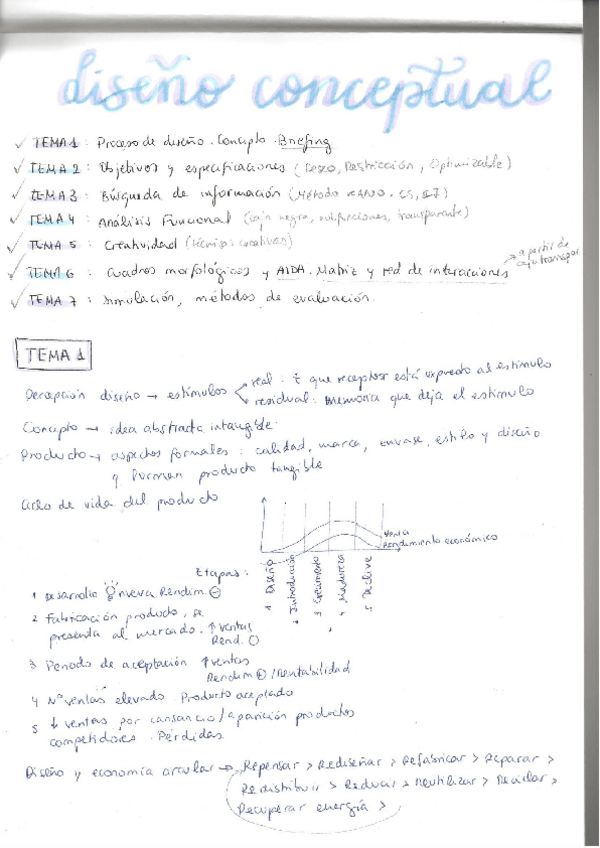 diseño conceptual
✓ TEMA 1 : Proceso de diseño. Concepto. Briefing
✓ TEMA 2 : Objetivos y especificaciones (Deseo, Restricción, Optimizable)
✓ TEMA 3 : Búsqueda de información (Método KANO.
✓ TEMA 4 : Análisis Funcional (caja negra, subfunciones, transparente)
✓ TEMA 5 : Creatividad (técnicas creativas)
✓ TEMA 6 : Cuadros morfológicos y AIDA. Matriz y red de interacciones
a partir de
caja transpar
✓ TEMA 7 : Simulación, métodos de evaluación.
TEMA 1
Percepción diseño → estímulos
real : t que receptor está expuesto al estímulo
residual : memoria que deja el estímulo
Concepto → idea abstracta intangible
Producto → aspectos formales : calidad, marca, envase, estilo y diseño
y forman producto tangible
Ciclo de vida del producto
Venta
Rendimiento económico
1 Diseño
2 Introducción
3 Crecimiento
4 Madurez
5 Declive
Etapas :
1 Desarrollo nueva Rendim ⊖
2 Fabricación producto, se
presenta al mercado. ↑ ventas
Rend. ⊖
3 Periodo de aceptación ↑ ventas
Rendim ⊕ / Rentabilidad
4 Nº ventas elevado. Producto aceptado
5 ↓ ventas por cansancio / aparición productos
competidores. Pérdidas
Diseño y economía circular → Repensar > Rediseñar > Refabricar > Reparar >
Redistribuir > Reducir > Reutilizar > Reciclar >
Recuperar energía >